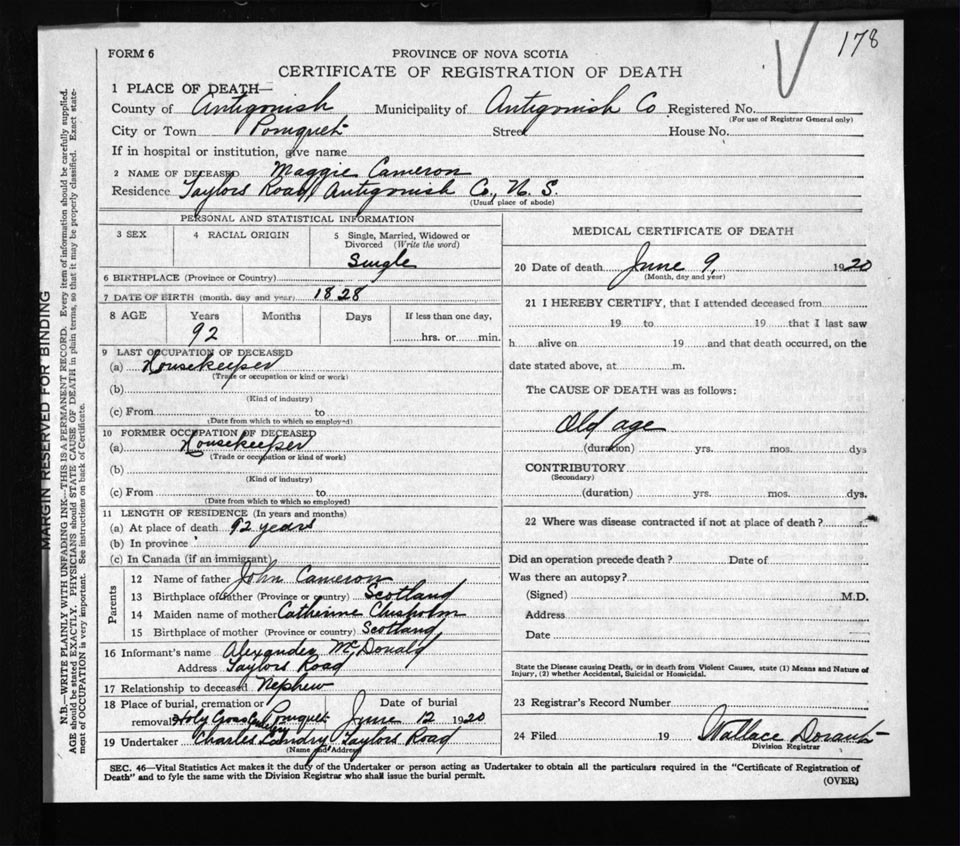 178
FORM 6
PROVINCE OF NOVA SCOTIA
CERTIFICATE OF REGISTRATION OF DEATH
1 PLACE OF DEATH—
County of Antigonish Municipality of Antigonish Co Registered No.
(For use of Registrar General only)
City or Town Pomquet Street House No.
If in hospital or institution, give name
2 NAME OF DECEASED Maggie Cameron
Residence Taylors Road, Antigonish Co., N. S.
(Usual place of abode)
PERSONAL AND STATISTICAL INFORMATION
3 SEX 4 RACIAL ORIGIN 5 Single, Married, Widowed or
Divorced (Write the word)
Single
6 BIRTHPLACE (Province or Country)
7 DATE OF BIRTH (month, day and year) 1828
8 AGE Years Months Days If less than one day,
92 hrs. or min.
9 LAST OCCUPATION OF DECEASED
(a) Housekeeper
(Trade or occupation or kind or work)
(b)
(Kind of industry)
(c) From to
(Date from which to which so employed)
10 FORMER OCCUPATION OF DECEASED
(a) Housekeeper
(Trade or occupation or kind of work)
(b)
(Kind of industry)
(c) From to
(Date from which to which so employed)
11 LENGTH OF RESIDENCE (In years and months)
(a) At place of death 92 years
(b) In province
(c) In Canada (if an immigrant)
Parents
12 Name of father John Cameron
13 Birthplace of father (Province or country) Scotland
14 Maiden name of mother Catherine Chisholm
15 Birthplace of mother (Province or country) Scotland
16 Informant's name Alexander McDonald
Address Taylors Road
17 Relationship to deceased Nephew
18 Place of burial, cremation or Date of burial
removal Holy Cross Pomquet June 12 1920
19 Undertaker Charles Landry Taylors Road
(Name and Address)
MEDICAL CERTIFICATE OF DEATH
20 Date of death June 9, 1920
(Month, day and year)
21 I HEREBY CERTIFY, that I attended deceased from
19 to 19 that I last saw
h alive on 19 and that death occurred, on the
date stated above, at m.
The CAUSE OF DEATH was as follows:
Old age
(duration) yrs. mos. dys
CONTRIBUTORY
(Secondary)
(duration) yrs. mos. dys.
22 Where was disease contracted if not at place of death?
Did an operation precede death? Date of
Was there an autopsy?
(Signed) M.D.
Address
Date
State the Disease causing Death, or in death from Violent Causes, state (1) Means and Nature of
Injury, (2) whether Accidental, Suicidal or Homicidal.
23 Registrar's Record Number
24 Filed 19 Wallace
Division Registrar
SEC. 46—Vital Statistics Act makes it the duty of the Undertaker or person acting as Undertaker to obtain all the particulars required in the "Certificate of Registration of
Death" and to fyle the same with the Division Registrar who shall issue the burial permit.
(OVER)
MARGIN RESERVED FOR BINDING
N.B.—WRITE PLAINLY WITH UNFADING INK—THIS IS A PERMANENT RECORD. Every item of information should be carefully supplied.
AGE should be stated EXACTLY. PHYSICIANS should STATE CAUSE OF DEATH in plain terms, so that it may be properly classified. Exact state-
ment of OCCUPATION is very important. See instructions on back of Certificate.